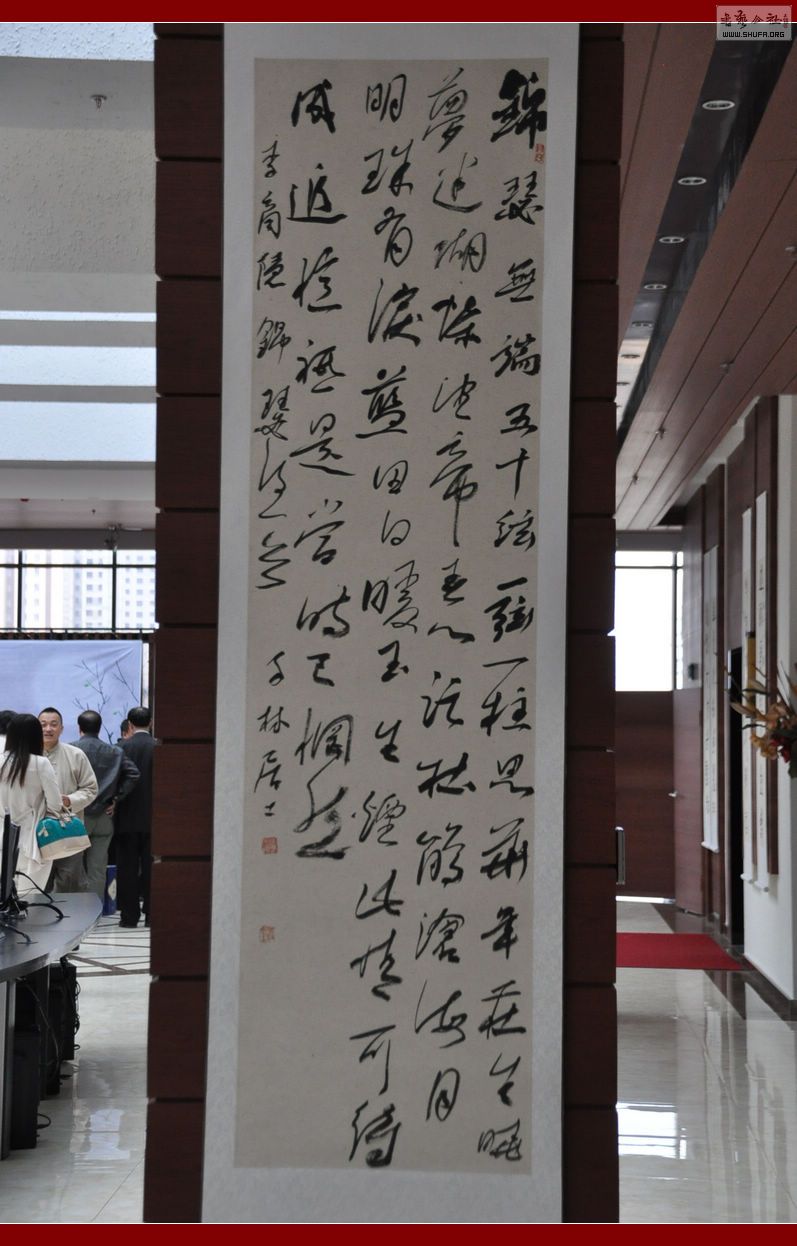 錦瑟無端五十絃一弦一柱思華年莊生曉
夢迷蝴蝶望帝春心託杜鵑滄海月
明珠有淚藍田日暖玉生煙此情可待
成追憶祇是當時已惘然
李商隱錦瑟
林居士
書藝公社
WWW.SHUFA.ORG